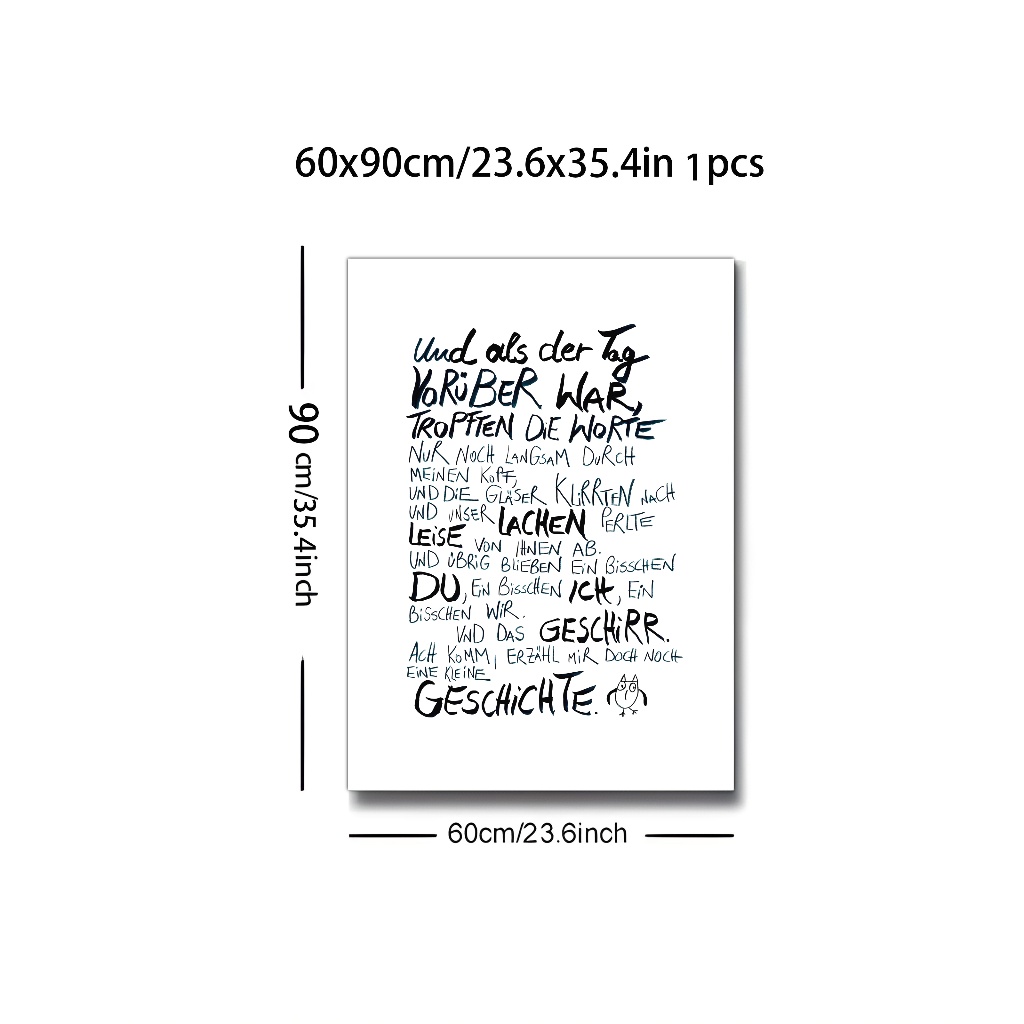 60x90cm/23.6x35.4in 1pcs
90 cm/35.4inch
Und als der Tag
VORÜBER WAR,
TROPFTEN DIE WORTE
NUR NOCH LANGSAM DURCH
MEINEN KOPF,
UND DIE GLÄSER KLIRRTEN NACH
UND UNSER LACHEN PERLTE
LEISE VON IHNEN AB.
UND ÜBRIG BLIEBEN EIN BISSCHEN
DU, EIN BISSCHEN ICH, EIN
BISSCHEN WIR.
UND DAS GESCHIRR.
ACH KOMM, ERZÄHL MIR DOCH NOCH
EINE KLEINE
GESCHICHTE.
60cm/23.6inch